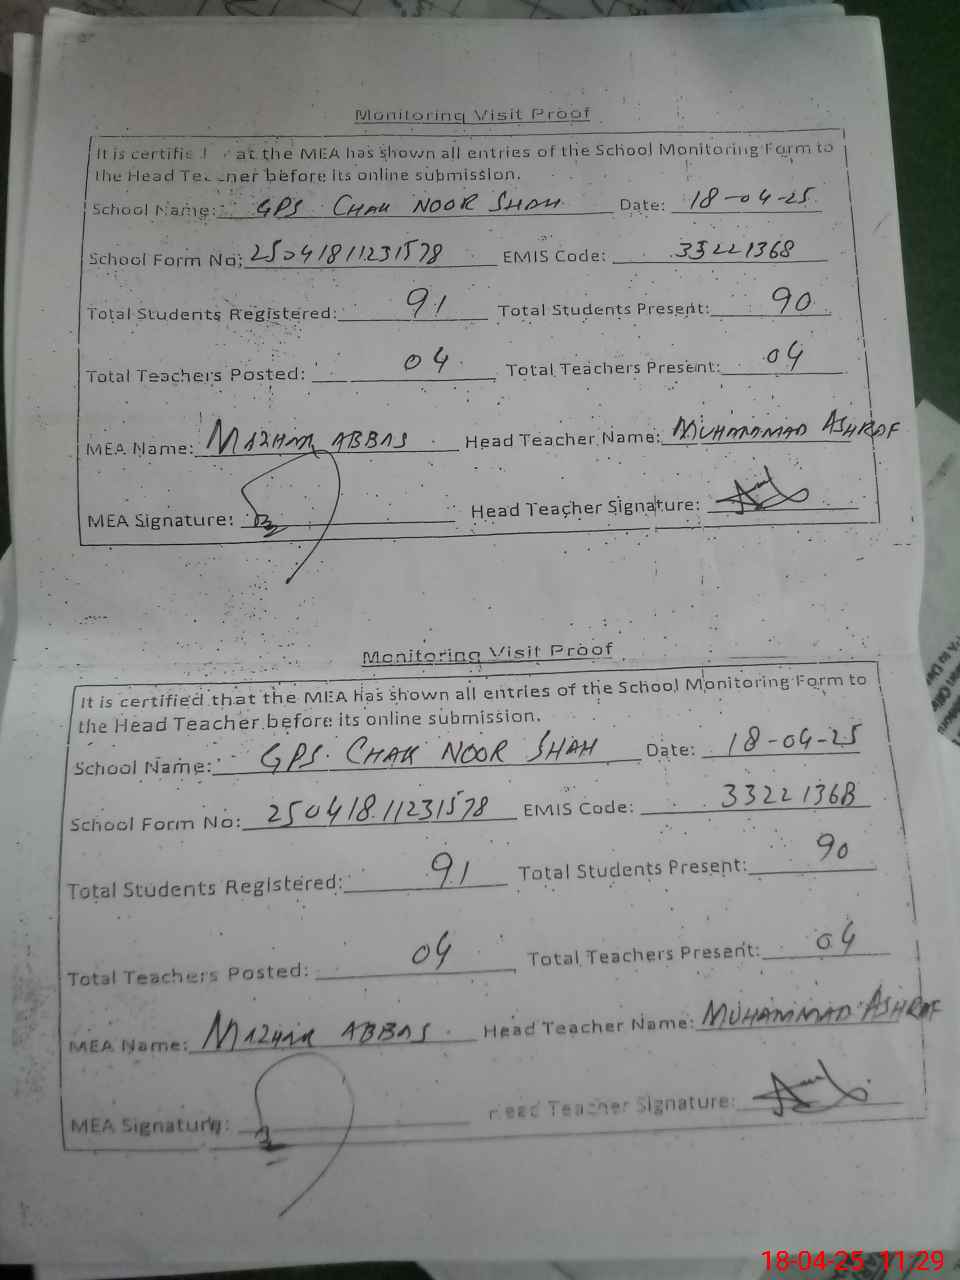 Monitoring Visit Proof
It is certified that the MEA has shown all entries of the School Monitoring Form to
the Head Teacher before its online submission.
School Name: GPS CHAK NOOR SHAH Date: 18-04-25
School Form No: 25041811231578 EMIS Code: 33221368
Total Students Registered: 91 Total Students Present: 90
Total Teachers Posted: 04 Total Teachers Present: 04
MEA Name: MAZHAR ABBAS Head Teacher Name: MUHAMMAD ASHRAF
MEA Signature: Head Teacher Signature:
Monitoring Visit Proof
It is certified that the MEA has shown all entries of the School Monitoring Form to
the Head Teacher before its online submission.
School Name: GPS. CHAK NOOR SHAH Date: 18-04-25
School Form No: 25041811231578 EMIS Code: 33221368
Total Students Registered: 91 Total Students Present: 90
Total Teachers Posted: 04 Total Teachers Present: 04
MEA Name: MAZHAR ABBAS Head Teacher Name: MUHAMMAD ASHRAF
MEA Signature: Head Teacher Signature:
18-04-25 11:29